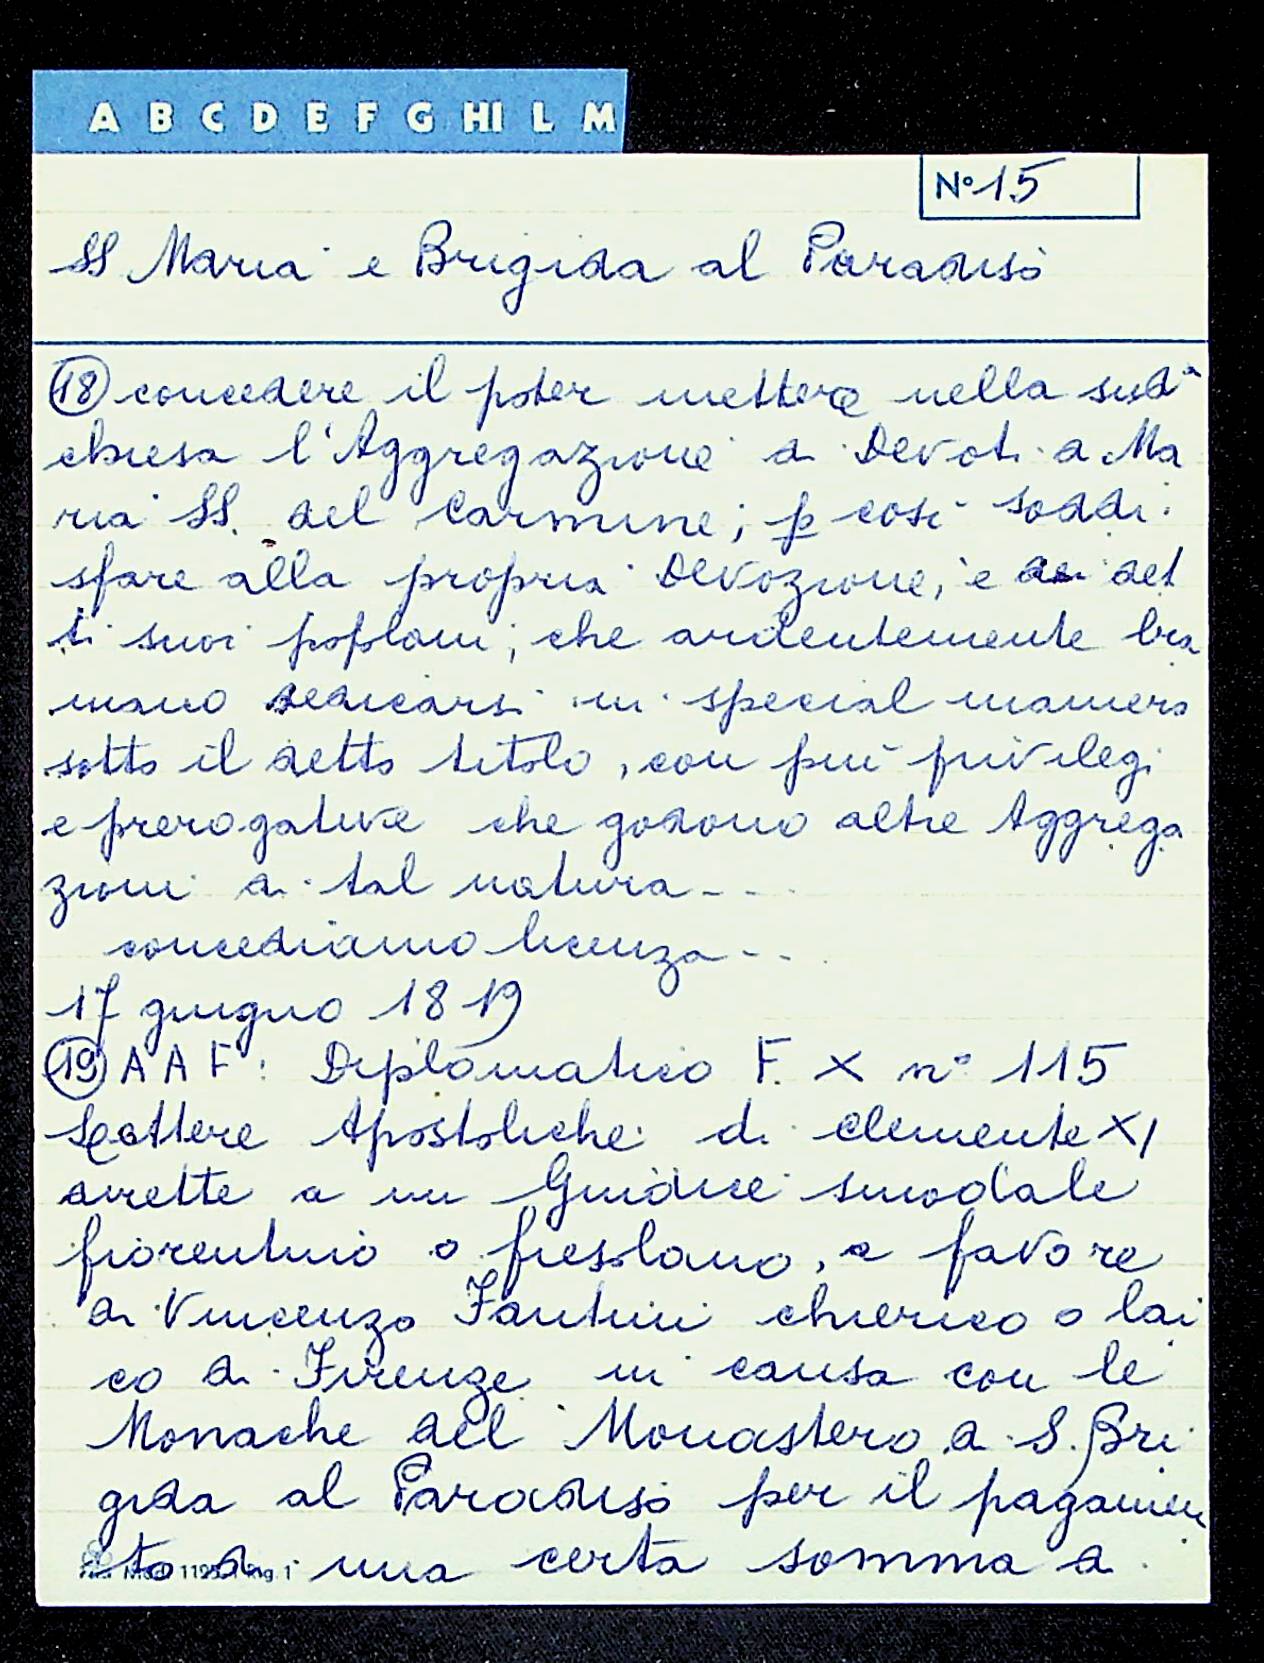 A B C D E F G HI L M
N° 15
SS Maria e Brigida al Paradiso
18 concedere il poter mettere nella sudª
chiesa l'Aggregazione di Devoti a Ma
ria SS. del Carmine; p così soddi
sfare alla propria Devozione, e dei det
ti suoi popolani; che ardentemente bra
mano dedicarsi in special maniera
sotto il detto titolo, con più privilegi
e prerogative che godono altre Aggrega
zioni di tal natura - - -
concediamo licenza - - -
17 giugno 1819
19 A A F: Diplomatico F. X n° 115
Lettere Apostoliche di Clemente XI
dirette a un Giudice sinodale
fiorentino o fiesolano, a favore
di Vincenzo Fantini chierico o lai
co di Firenze in causa con le
Monache del Monastero di S. Bri
gida al Paradiso per il pagamen
to di una certa somma di